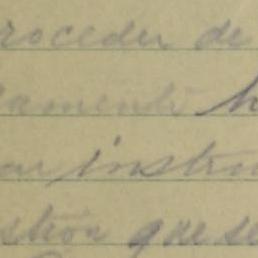 roceder de
lamente h
ar instru
stion que se